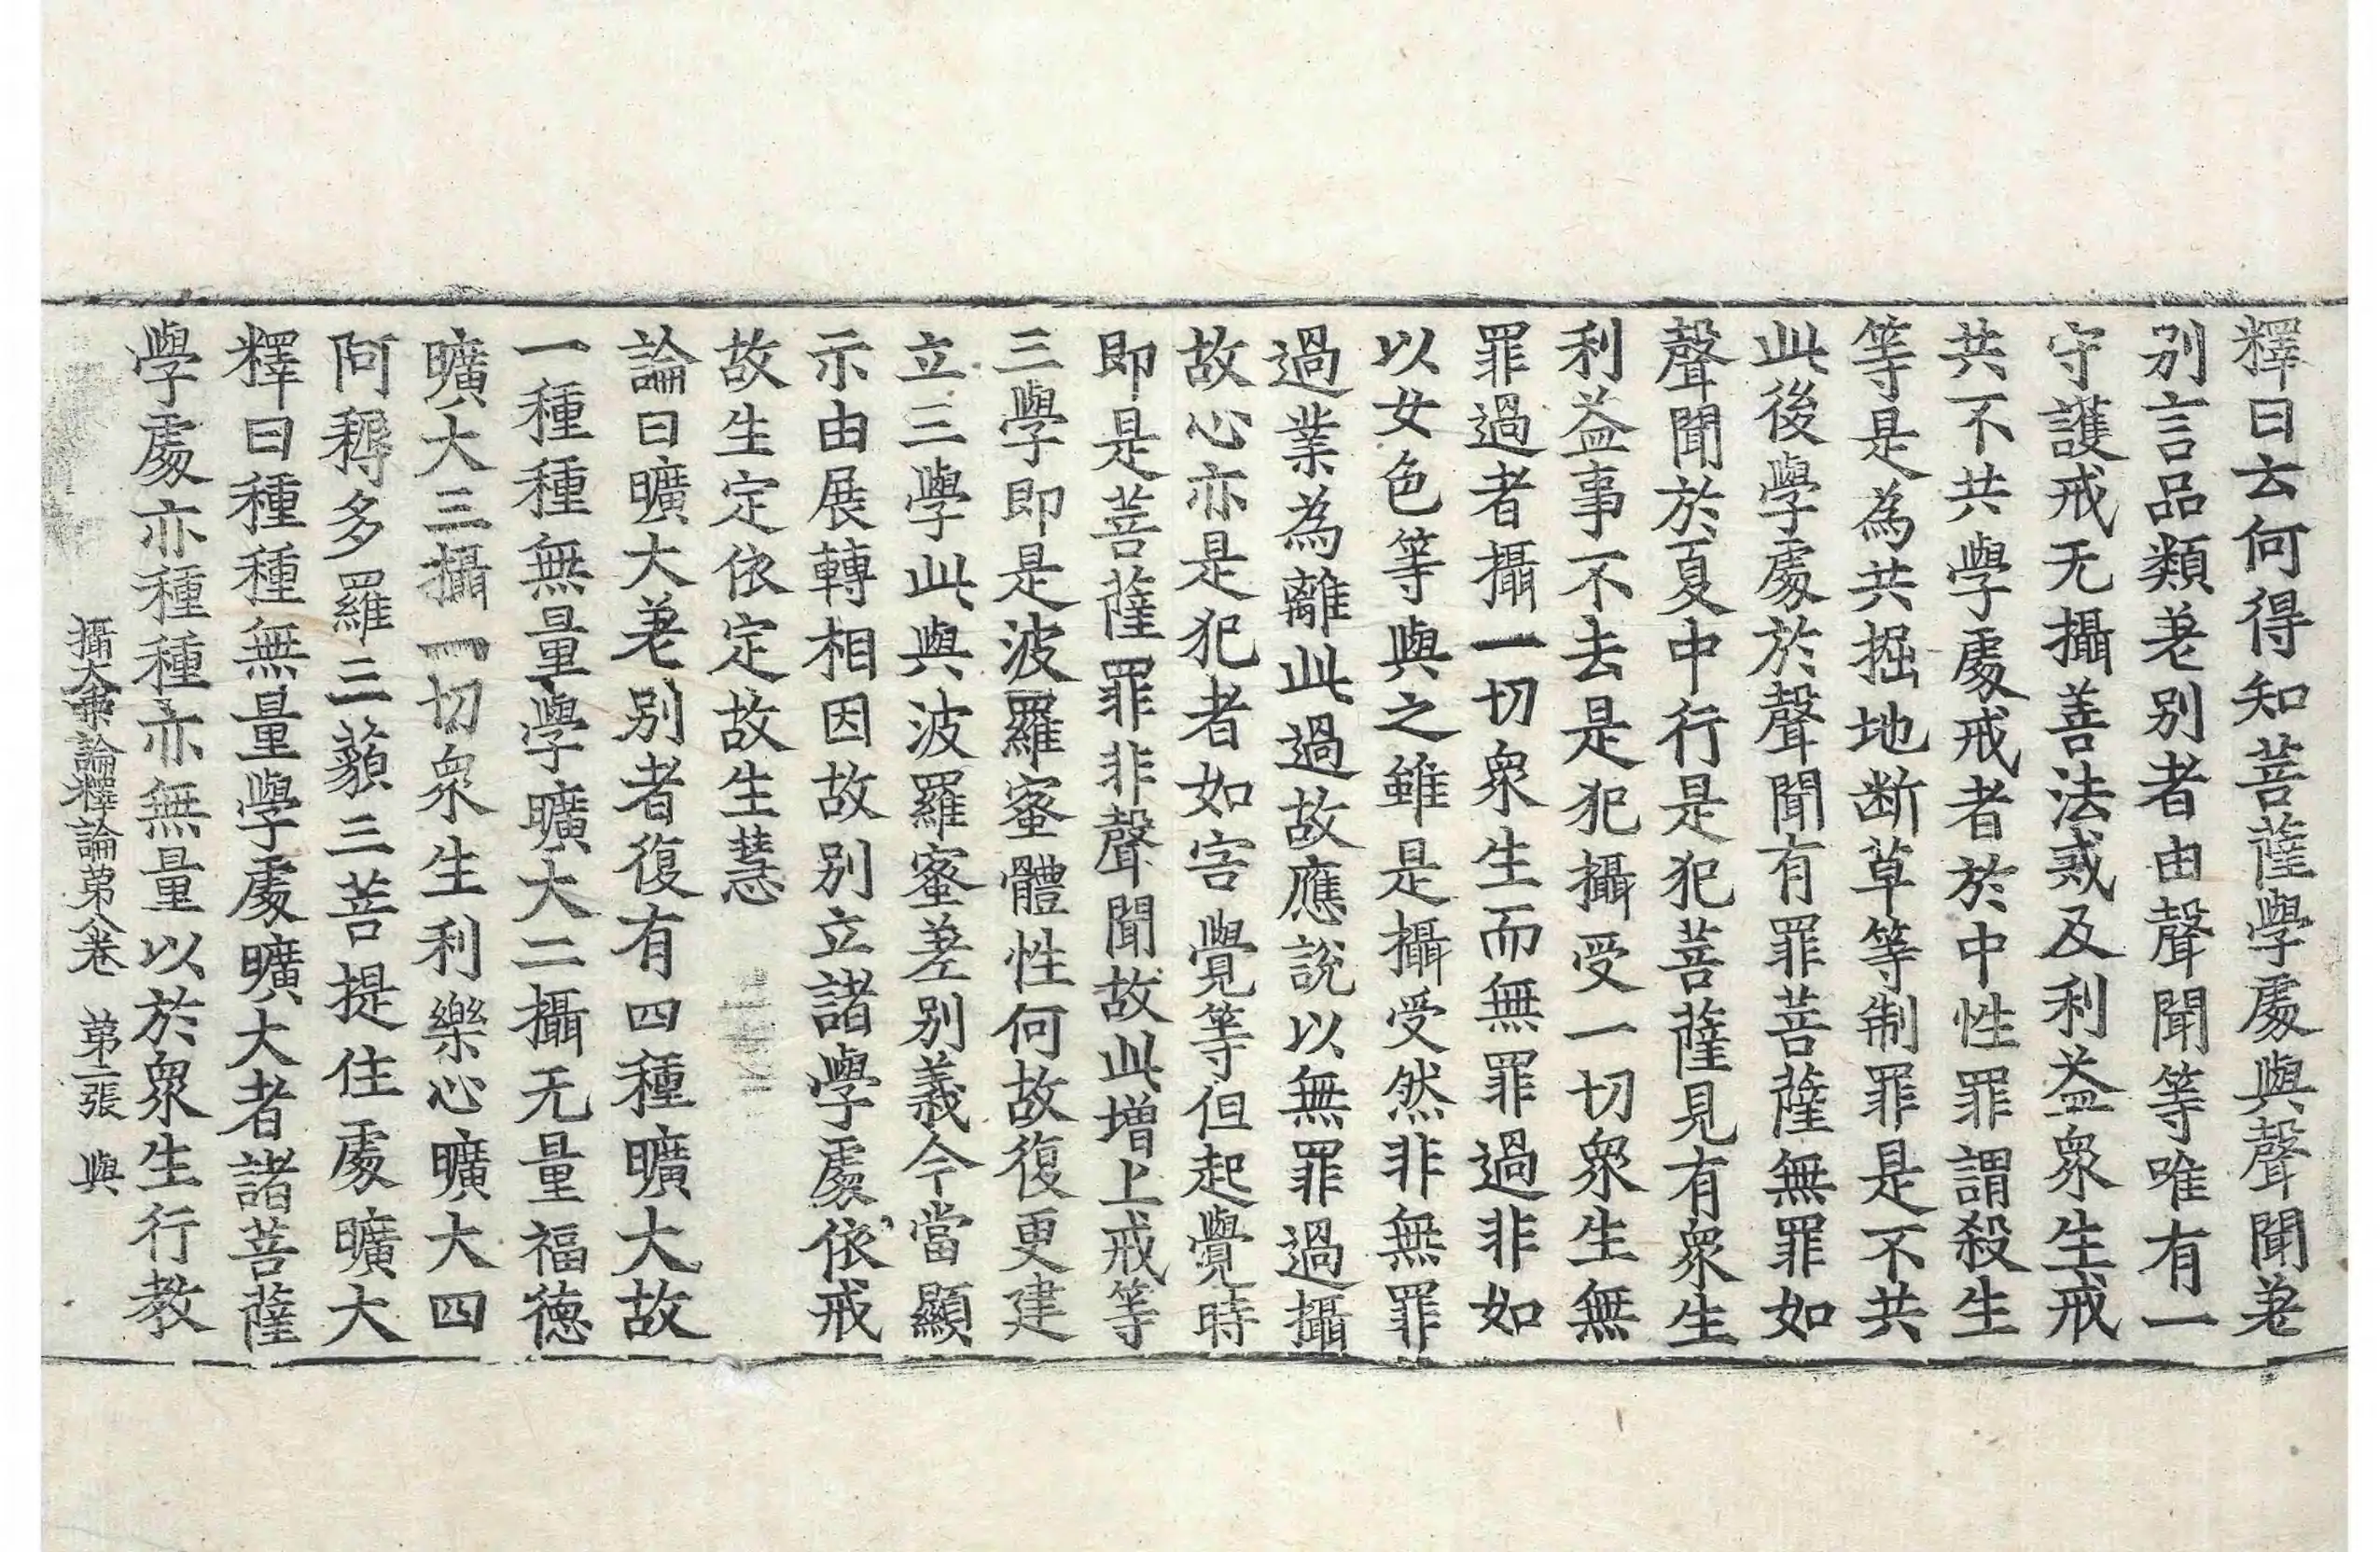 釋曰云何得知菩薩學處與聲聞差
別言品類差別者由聲聞等唯有一
守護戒无攝善法戒及利益衆生戒
共不共學處戒者於中性罪謂殺生
等是為共掘地斷草等制罪是不共
此後學處於聲聞有罪菩薩無罪如
聲聞於夏中行是犯菩薩見有衆生
利益事不去是犯攝受一切衆生無
罪過者攝一切衆生而無罪過非如
以女色等與之雖是攝受然非無罪
過業為離此過故應說以無罪過攝
故心亦是犯者如害覺等但起覺時
即是菩薩罪非聲聞故此增上戒等
三學即是波羅蜜體性何故復更建
立三學此與波羅蜜差別義今當顯
示由展轉相因故別立諸學處依戒
故生定依定故生慧
論曰曠大差別者復有四種曠大故
一種種無量學曠大二攝无量福德
曠大三攝一切衆生利樂心曠大四
阿耨多羅三藐三菩提住處曠大
釋曰種種無量學處曠大者諸菩薩
學處亦種種亦無量以於衆生行教
攝大乗論釋論第八卷　第二張　與